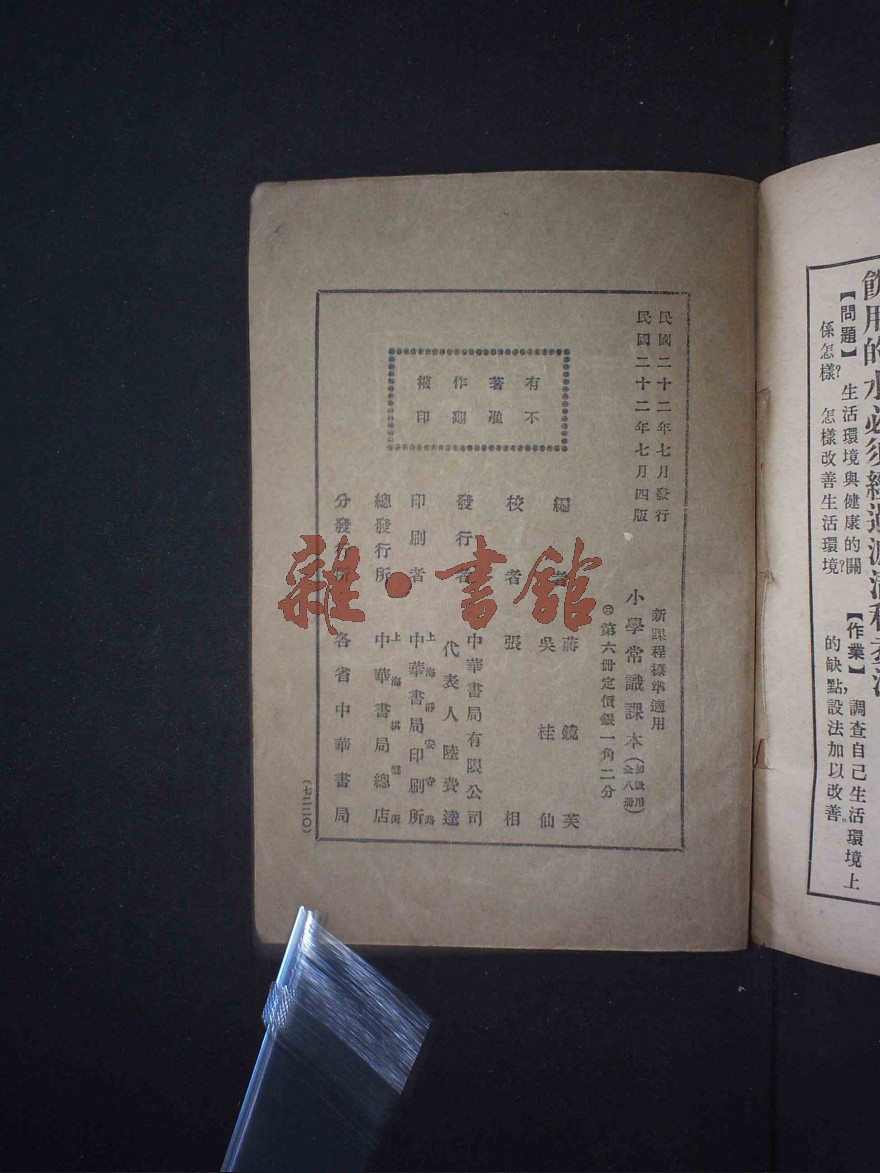 飲用的水必須經過濾清和煮沸
【問題】生活環境與健康的關
係怎樣?怎樣改善生活環境?
【作業】調查自己生活環境上
的缺點,設法加以改善。
民國二十二年七月發行
民國二十二年七月四版
新課程標準適用
小學常識課本(初級用全八册)
第六册定價銀一角二分
有不
著准
作翻
權印
編者 蔣鏡芙
吳桂仙
校者 張相
發行者 中華書局有限公司
代表人 陸費逵
印刷者 上海靜安寺路
中華書局印刷所
總發行所 上海棋盤街
中華書局總店
分發行所 各省中華書局
(七二二〇)
雜·書館